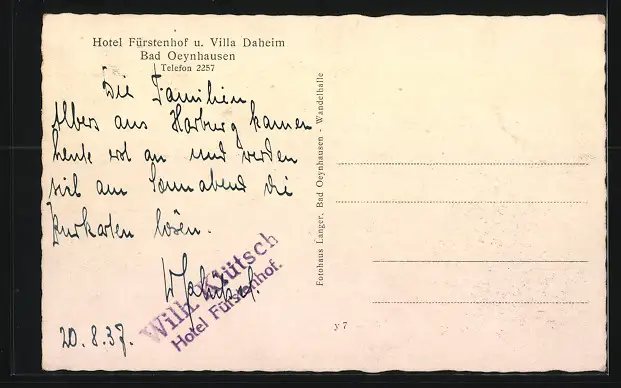 Hotel Fürstenhof u. Villa Daheim
Bad Oeynhausen
Telefon 2257
Die Familien
Albers aus Harburg kamen
heute erst an und werden
sich am Sonnabend die
Kurkarten lösen.
Wilh. Klütsch
Hotel Fürstenhof.
20.8.37.
Fotohaus Langer, Bad Oeynhausen - Wandelhalle
y 7